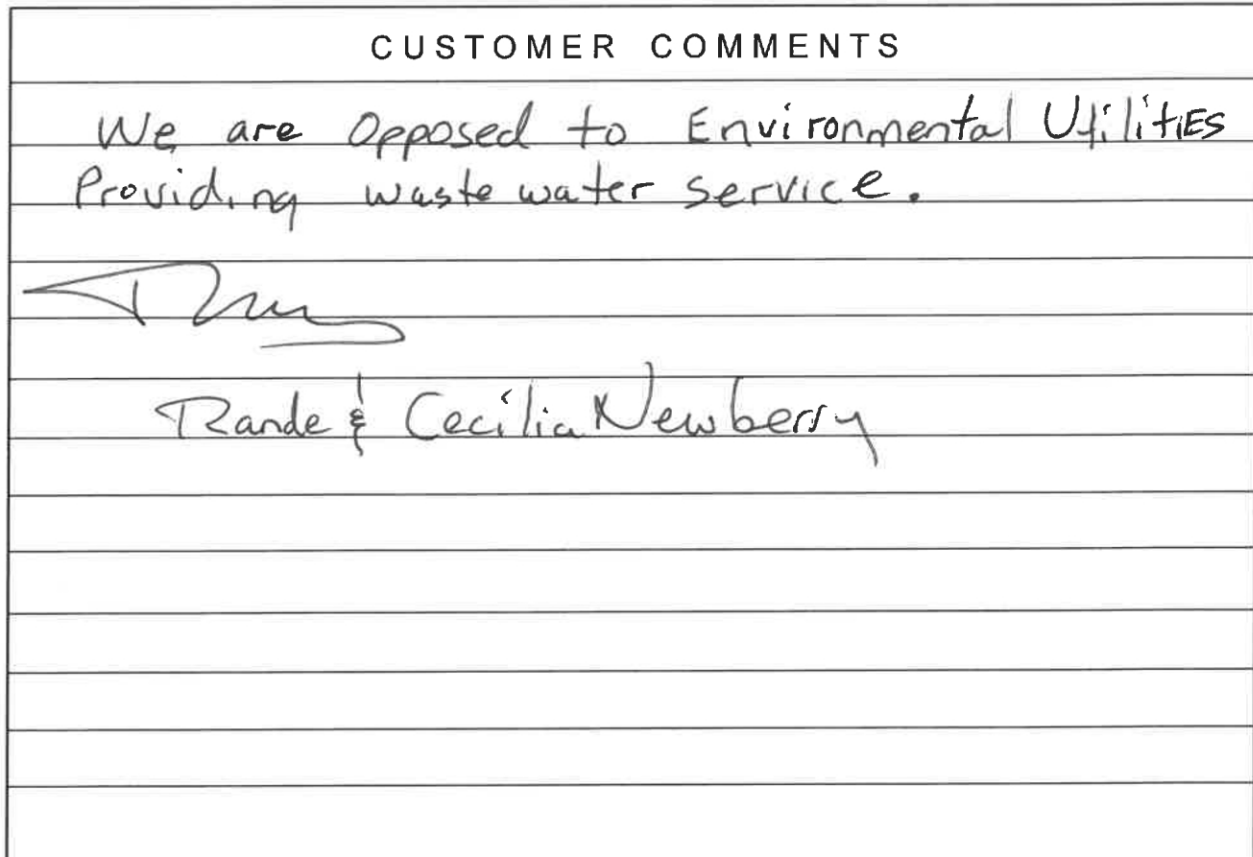 CUSTOMER COMMENTS
We are Opposed to Environmental Utilities
Providing waste water service.
Rande & Cecilia Newberry